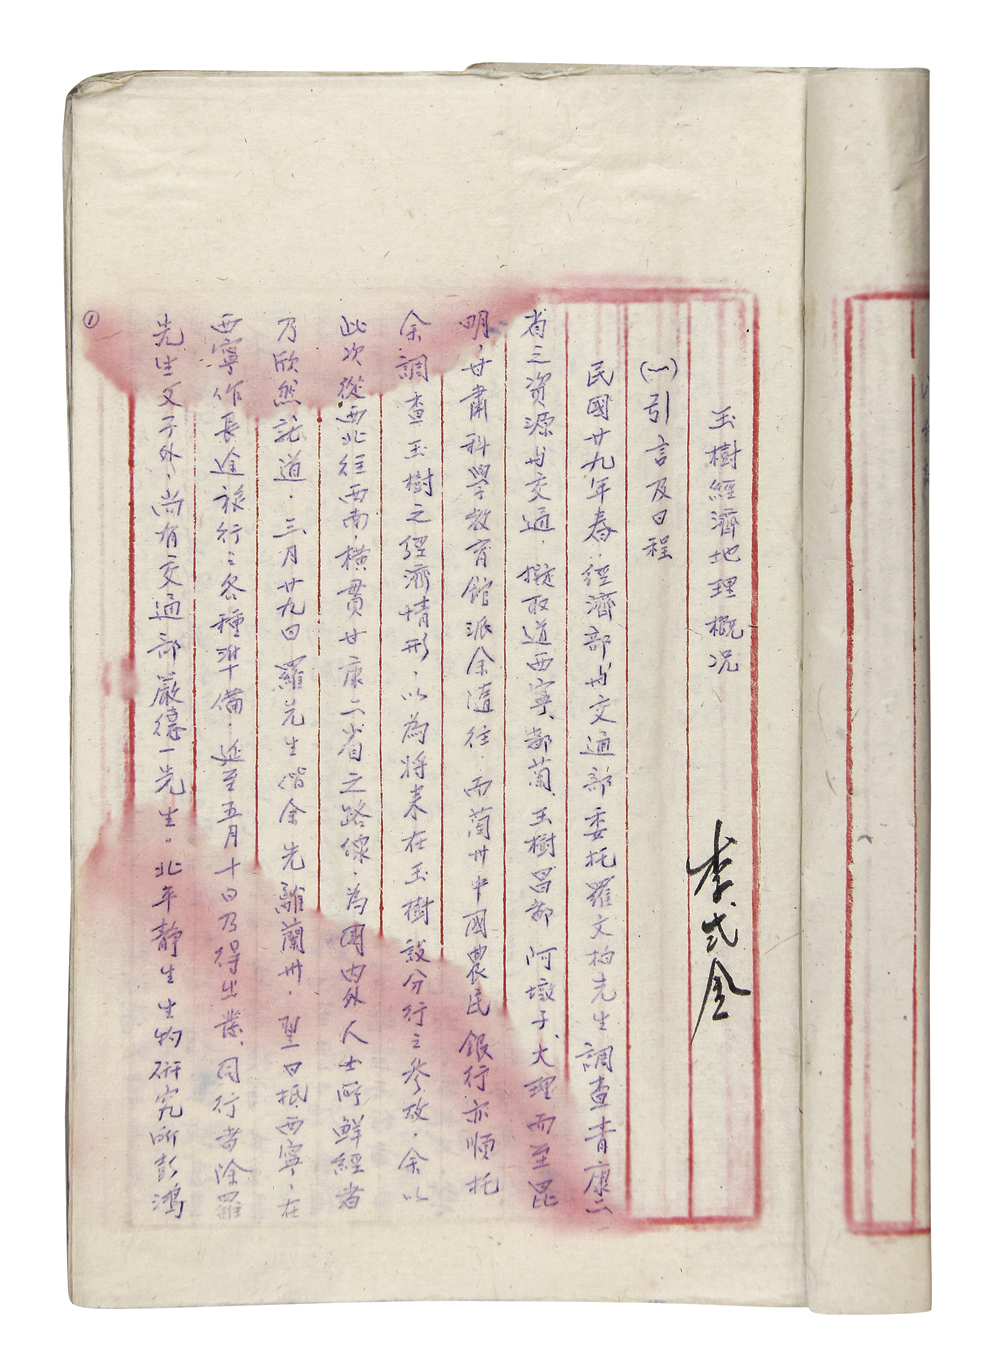 玉樹經濟地理概况
李式金
(一)引言及日程
民國廿九年春，經濟部與交通部委托羅文柏先生調查青康二
省之資源與交通，擬取道西寧、都蘭、玉樹、昌都、阿墩子、大理而至昆
明，甘肅科學教育館派余隨往，而蘭州中國農民銀行亦順托
余調查玉樹之經濟情形，以為將來在玉樹設分行之參攷，余以
此次從西北往西南，橫貫甘康二省之路線，為國內外人士所鮮經者
乃欣然就道，三月廿九日羅先生偕余先離蘭州，翌日抵西寧，在
西寧作長途旅行之各種準備，延至五月十日乃得出發，同行者除羅
先生父子外，尚有交通部嚴德一先生。北平靜生生物研究所彭鴻
①